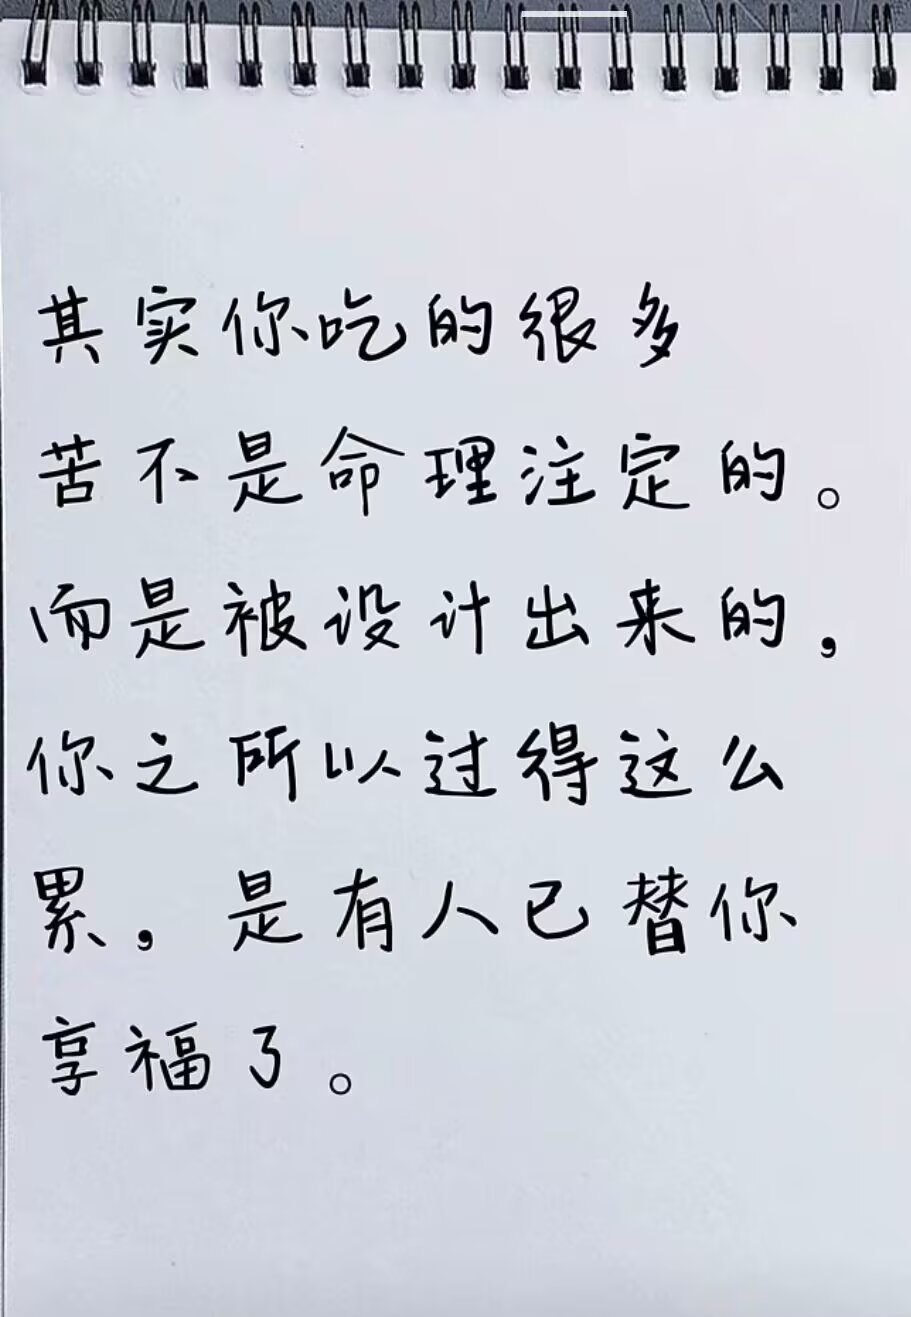 其实你吃的很多
苦不是命理注定的。
而是被设计出来的,
你之所以过得这么
累,是有人已替你
享福了。